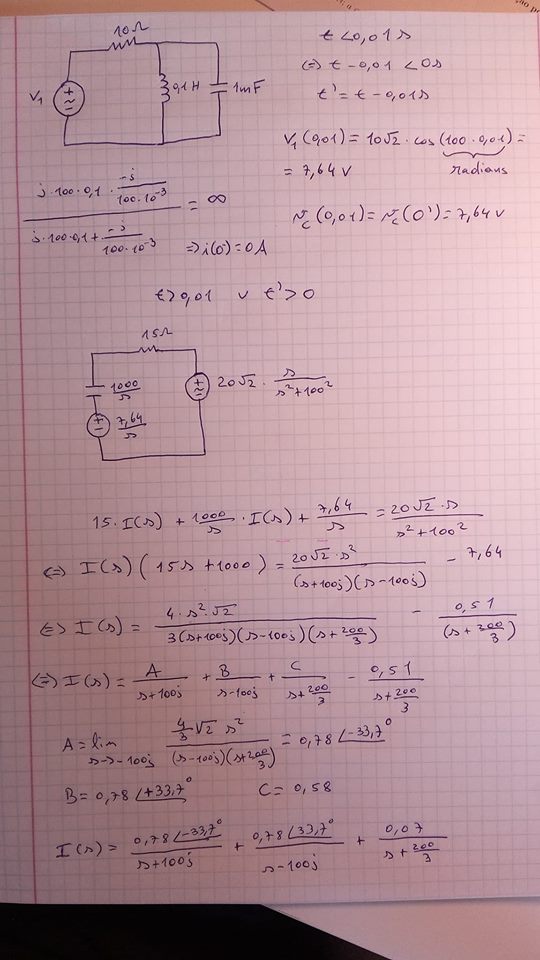 10Ω
V₁
0,1H
1mF
t < 0,01 s
(=) t - 0,01 < 0s
t' = t - 0,01s
V₁(0,01) = 10√2 · cos(100 · 0,01) =
radians
= 7,64 V
v_c(0,01) = v_c(0') = 7,64 V
(j·100·0,1 · (-j)/(100·10⁻³)) / (j·100·0,1 + (-j)/(100·10⁻³)) = ∞
=> i(0') = 0A
t > 0,01 v t' > 0
15Ω
1000/s
7,64/s
20√2 · s/(s²+100²)
15·I(s) + 1000/s · I(s) + 7,64/s = 20√2·s/(s²+100²)
(=) I(s)(15s + 1000) = 20√2 s²/((s+100j)(s-100j)) - 7,64
(=) I(s) = 4·s²·√2/(3(s+100j)(s-100j)(s+200/3)) - 0,51/(s+200/3)
(=) I(s) = A/(s+100j) + B/(s-100j) + C/(s+200/3) - 0,51/(s+200/3)
A = lim s->-100j (4/3 √2 s²)/((s-100j)(s+200/3)) = 0,78∠-33,7°
B = 0,78∠+33,7° C = 0,58
I(s) = 0,78∠-33,7°/(s+100j) + 0,78∠33,7°/(s-100j) + 0,07/(s+200/3)